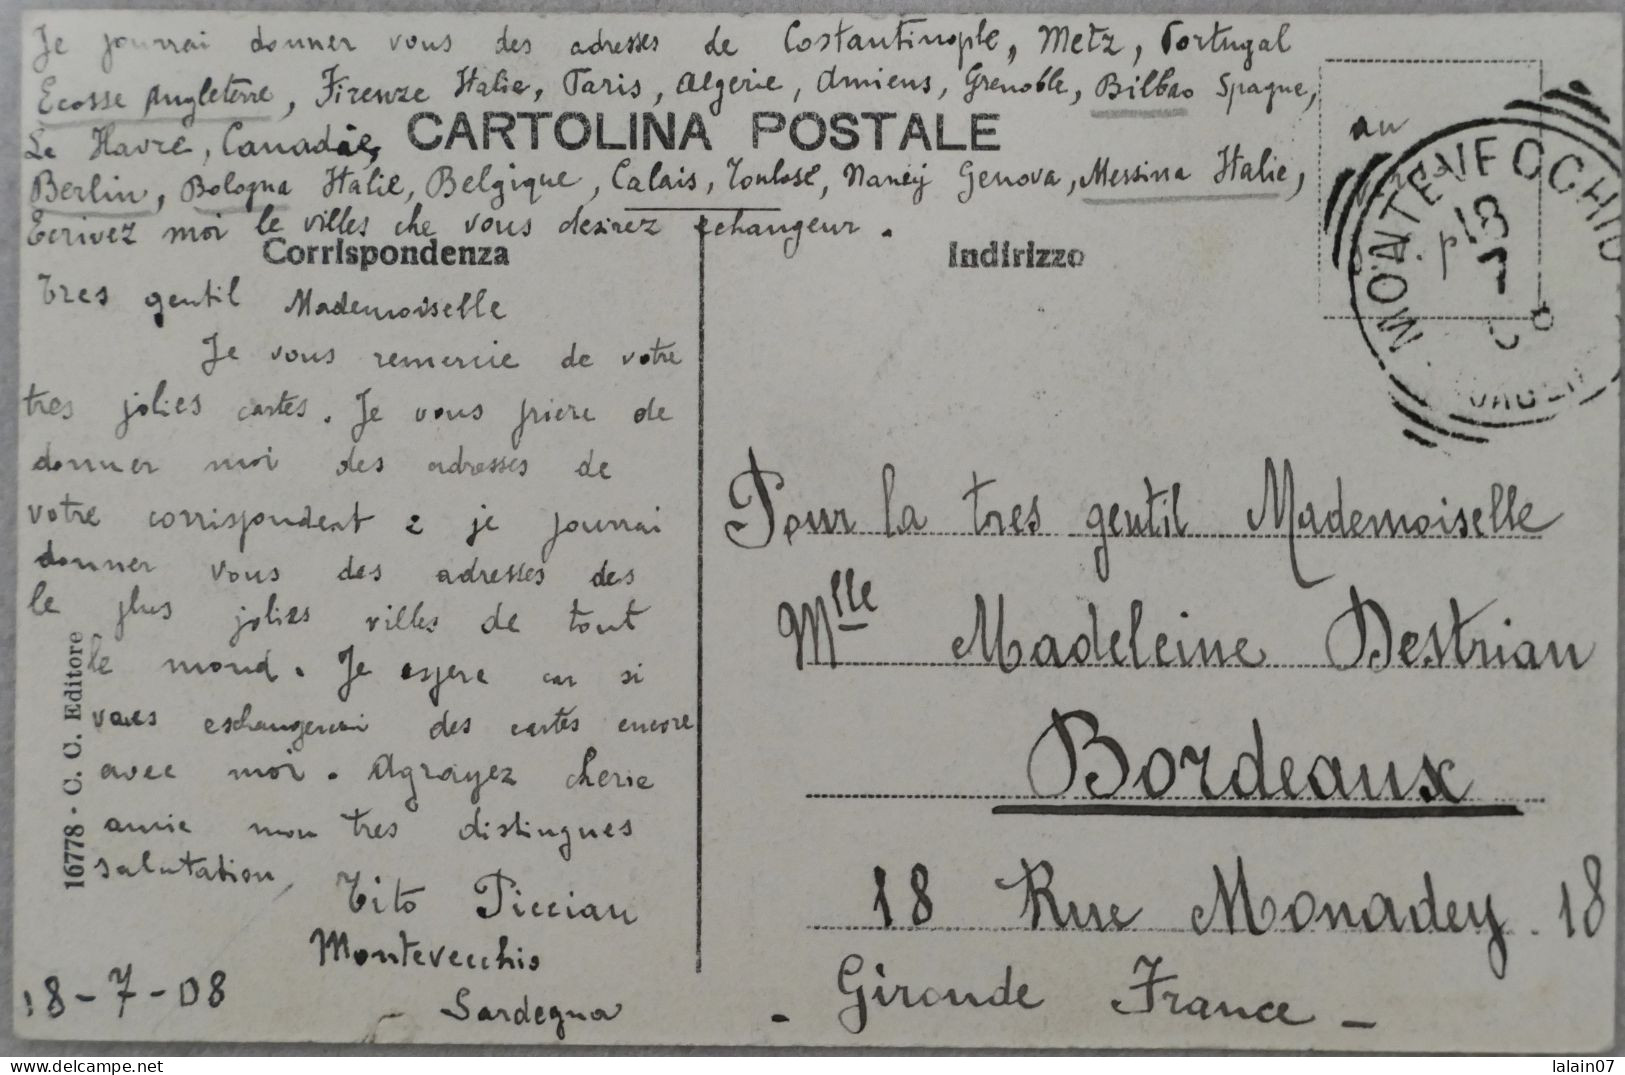 Je pourrai donner vous des adresses de Costantinople, Metz, Portugal
Ecosse Angleterre, Firenze Italie, Paris, Algerie, Amiens, Grenoble, Bilbao Spagne,
Le Havre, Canadáe,
CARTOLINA POSTALE
Berlin, Bologna Italie, Belgique, Calais, Toulose, Nancy Genova, Messina Italie,
Ecrivez moi le villes che vous desirez echangeur.
Corrispondenza
Indirizzo
MONTEVECCHIO
18 7
Tres gentil Mademoiselle
Je vous remercie de votre
tres jolies cartes. Je vous priere de
donner moi des adresses de
votre corrispondent e je pourrai
donner vous des adresses des
le plus jolies villes de tout
le mond. Je espere car si
vous eschangerai des cartes encore
avec moi. Agrayez cherie
amie mon tres distingues
salutation,
Tito Piccian
Montevecchio
Sardegna
18-7-08
16778 - C. C. Editore
Pour la tres gentil Mademoiselle
Mlle Madeleine Destrian
Bordeaux
18 Rue Monadey. 18
- Gironde France -
lalain07